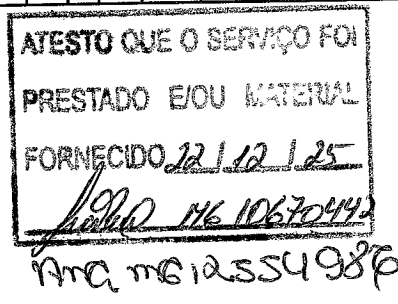 ATESTO QUE O SERVIÇO FOI
PRESTADO E/OU MATERIAL
FORNECIDO 22 / 12 / 25
MG 10670442
Ana MG 12554986